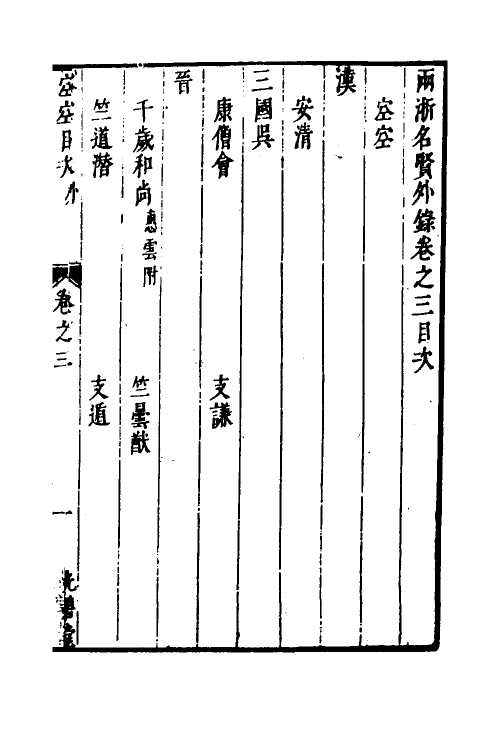 兩浙名賢外錄卷之三目次
空空
漢
安清
三國吳
康僧會 支謙
晉
千歲和尚 惠雲附 竺曇猷
竺道潛 支遁
空空目次
卷之三
一